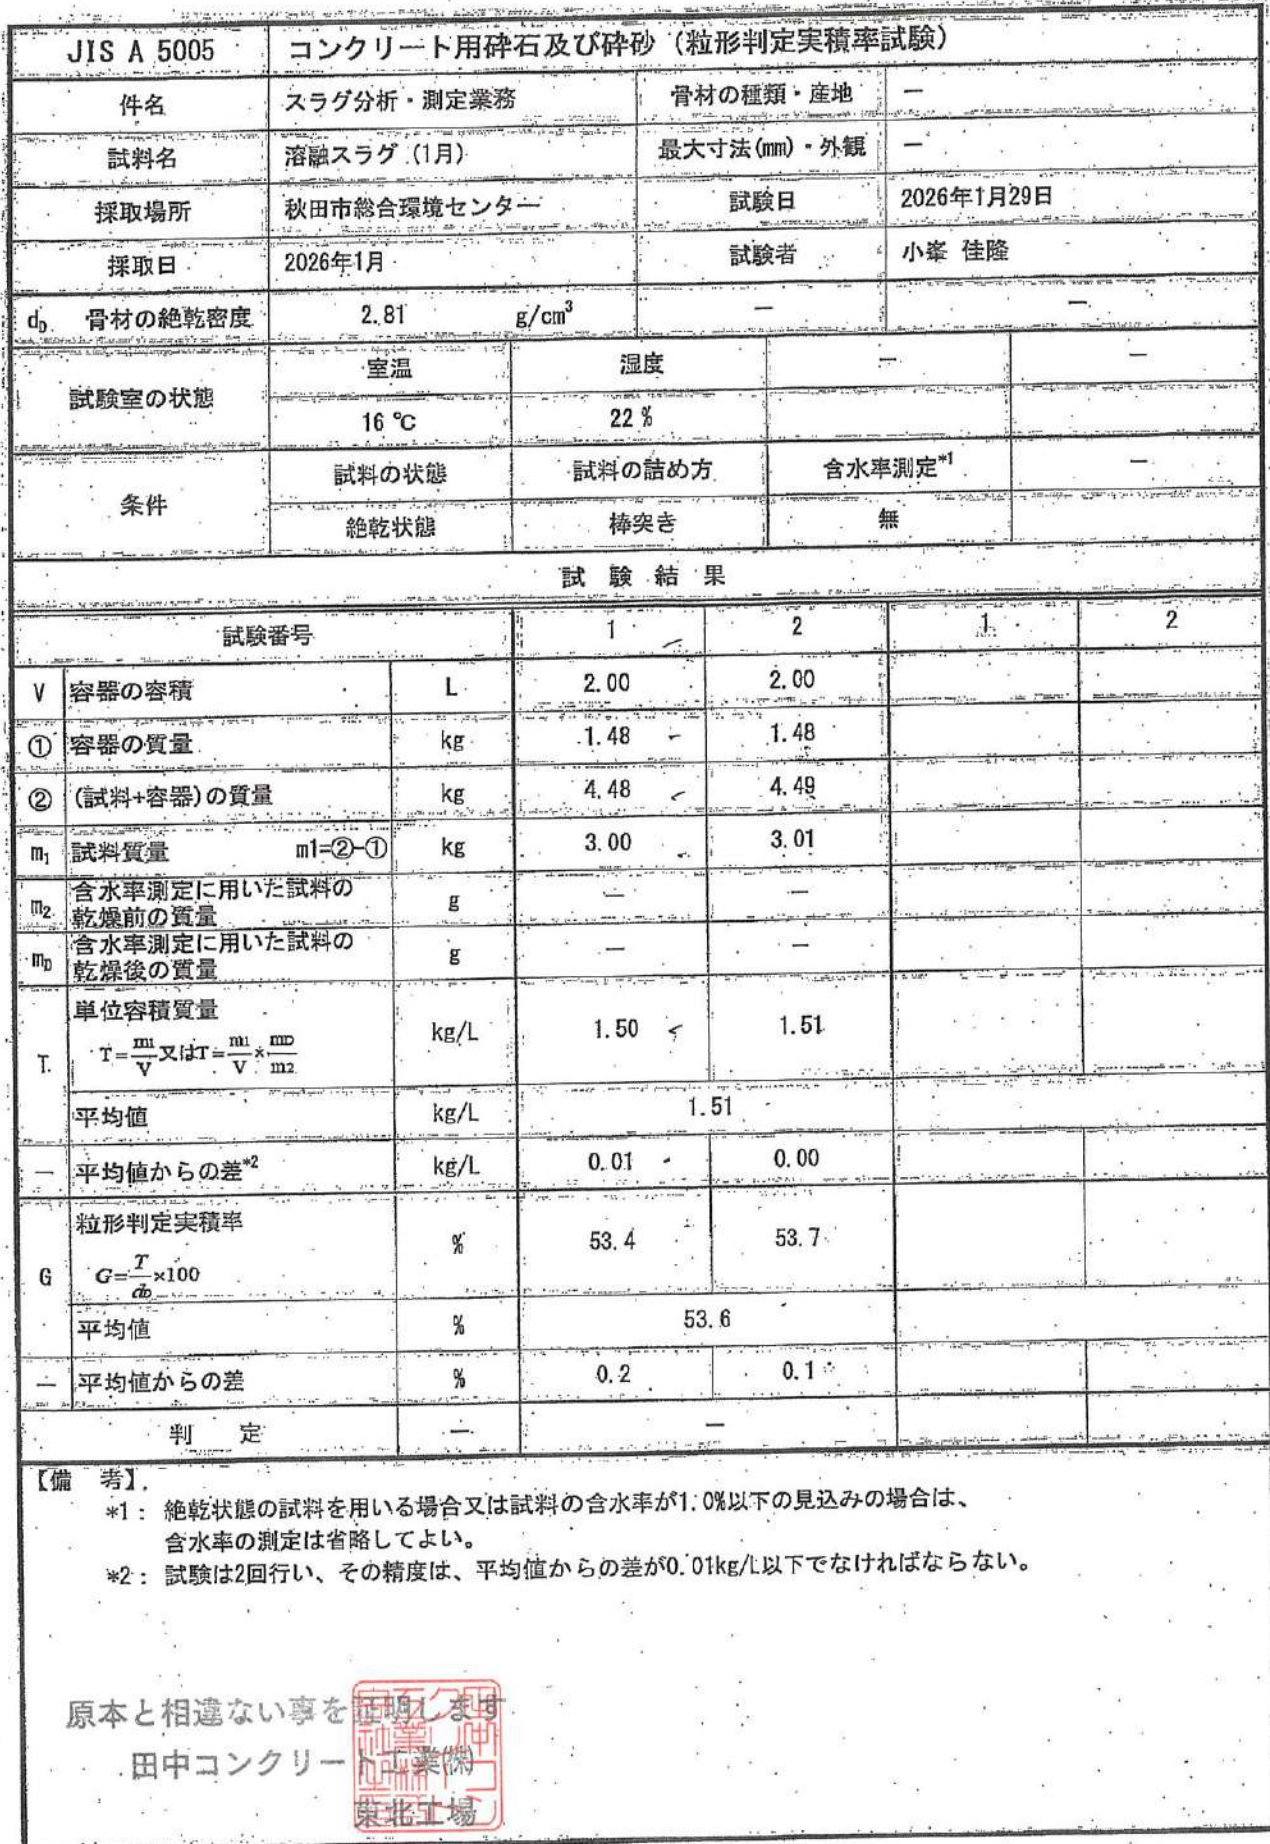 JIS A 5005 コンクリート用砕石及び砕砂（粒形判定実積率試験）
件名 スラグ分析・測定業務 骨材の種類・産地 ―
試料名 溶融スラグ（1月） 最大寸法(mm)・外観 ―
採取場所 秋田市総合環境センター 試験日 2026年1月29日
採取日 2026年1月 試験者 小峯 佳隆
dD 骨材の絶乾密度 2.81 g/cm³ ― ―
試験室の状態 室温 湿度 ― ―
16 ℃ 22 %
条件 試料の状態 試料の詰め方 含水率測定*1 ―
絶乾状態 棒突き 無
試 験 結 果
試験番号 1 2 1 2
V 容器の容積 L 2.00 2.00
① 容器の質量 kg 1.48 1.48
② (試料+容器)の質量 kg 4.48 4.49
m1 試料質量 m1=②-① kg 3.00 3.01
m2 含水率測定に用いた試料の
乾燥前の質量 g ― ―
mD 含水率測定に用いた試料の
乾燥後の質量 g ― ―
T 単位容積質量 kg/L 1.50 1.51
T=m1/V又はT=m1/V×mD/m2
平均値 kg/L 1.51
― 平均値からの差*2 kg/L 0.01 0.00
G 粒形判定実積率 % 53.4 53.7
G=T/dD×100
平均値 % 53.6
― 平均値からの差 % 0.2 0.1
判 定 ― ―
【備 考】
*1： 絶乾状態の試料を用いる場合又は試料の含水率が1.0%以下の見込みの場合は、
含水率の測定は省略してよい。
*2： 試験は2回行い、その精度は、平均値からの差が0.01kg/L以下でなければならない。
原本と相違ない事を証明します
田中コンクリート工業㈱
東北工場